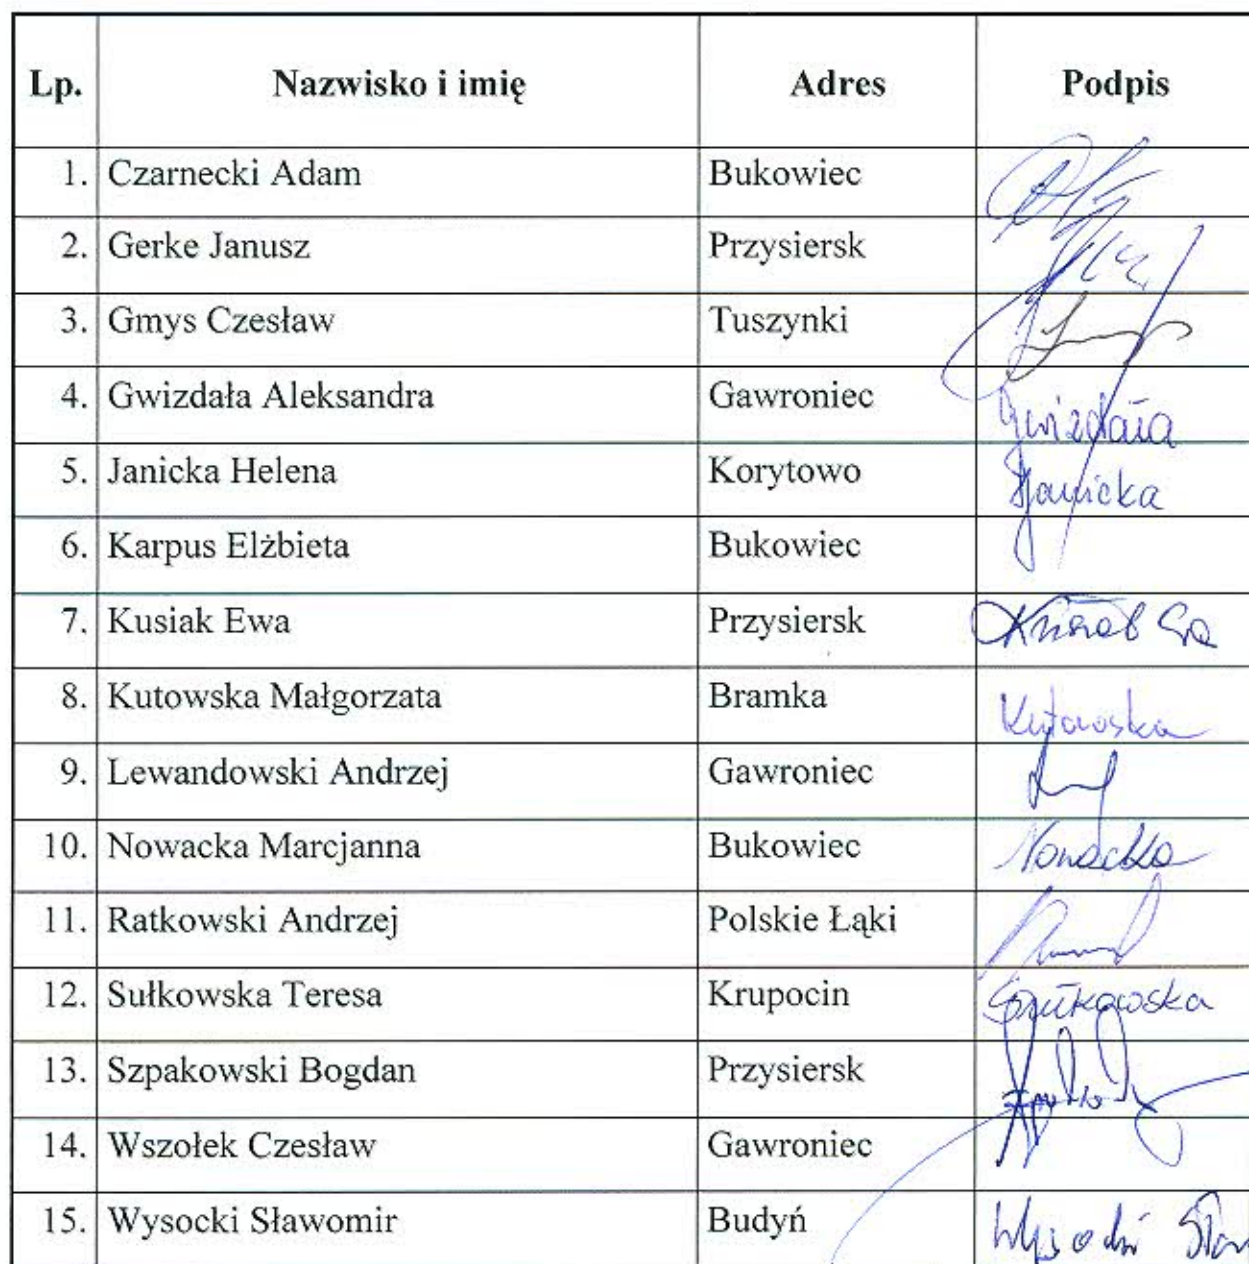 Lp. Nazwisko i imię Adres Podpis
1. Czarnecki Adam Bukowiec
2. Gerke Janusz Przysiersk
3. Gmys Czesław Tuszynki
4. Gwizdała Aleksandra Gawroniec Gwizdała
5. Janicka Helena Korytowo HJanicka
6. Karpus Elżbieta Bukowiec
7. Kusiak Ewa Przysiersk
8. Kutowska Małgorzata Bramka Kutowska
9. Lewandowski Andrzej Gawroniec
10. Nowacka Marcjanna Bukowiec Nowacka
11. Ratkowski Andrzej Polskie Łąki
12. Sułkowska Teresa Krupocin Sułkowska
13. Szpakowski Bogdan Przysiersk
14. Wszołek Czesław Gawroniec
15. Wysocki Sławomir Budyń